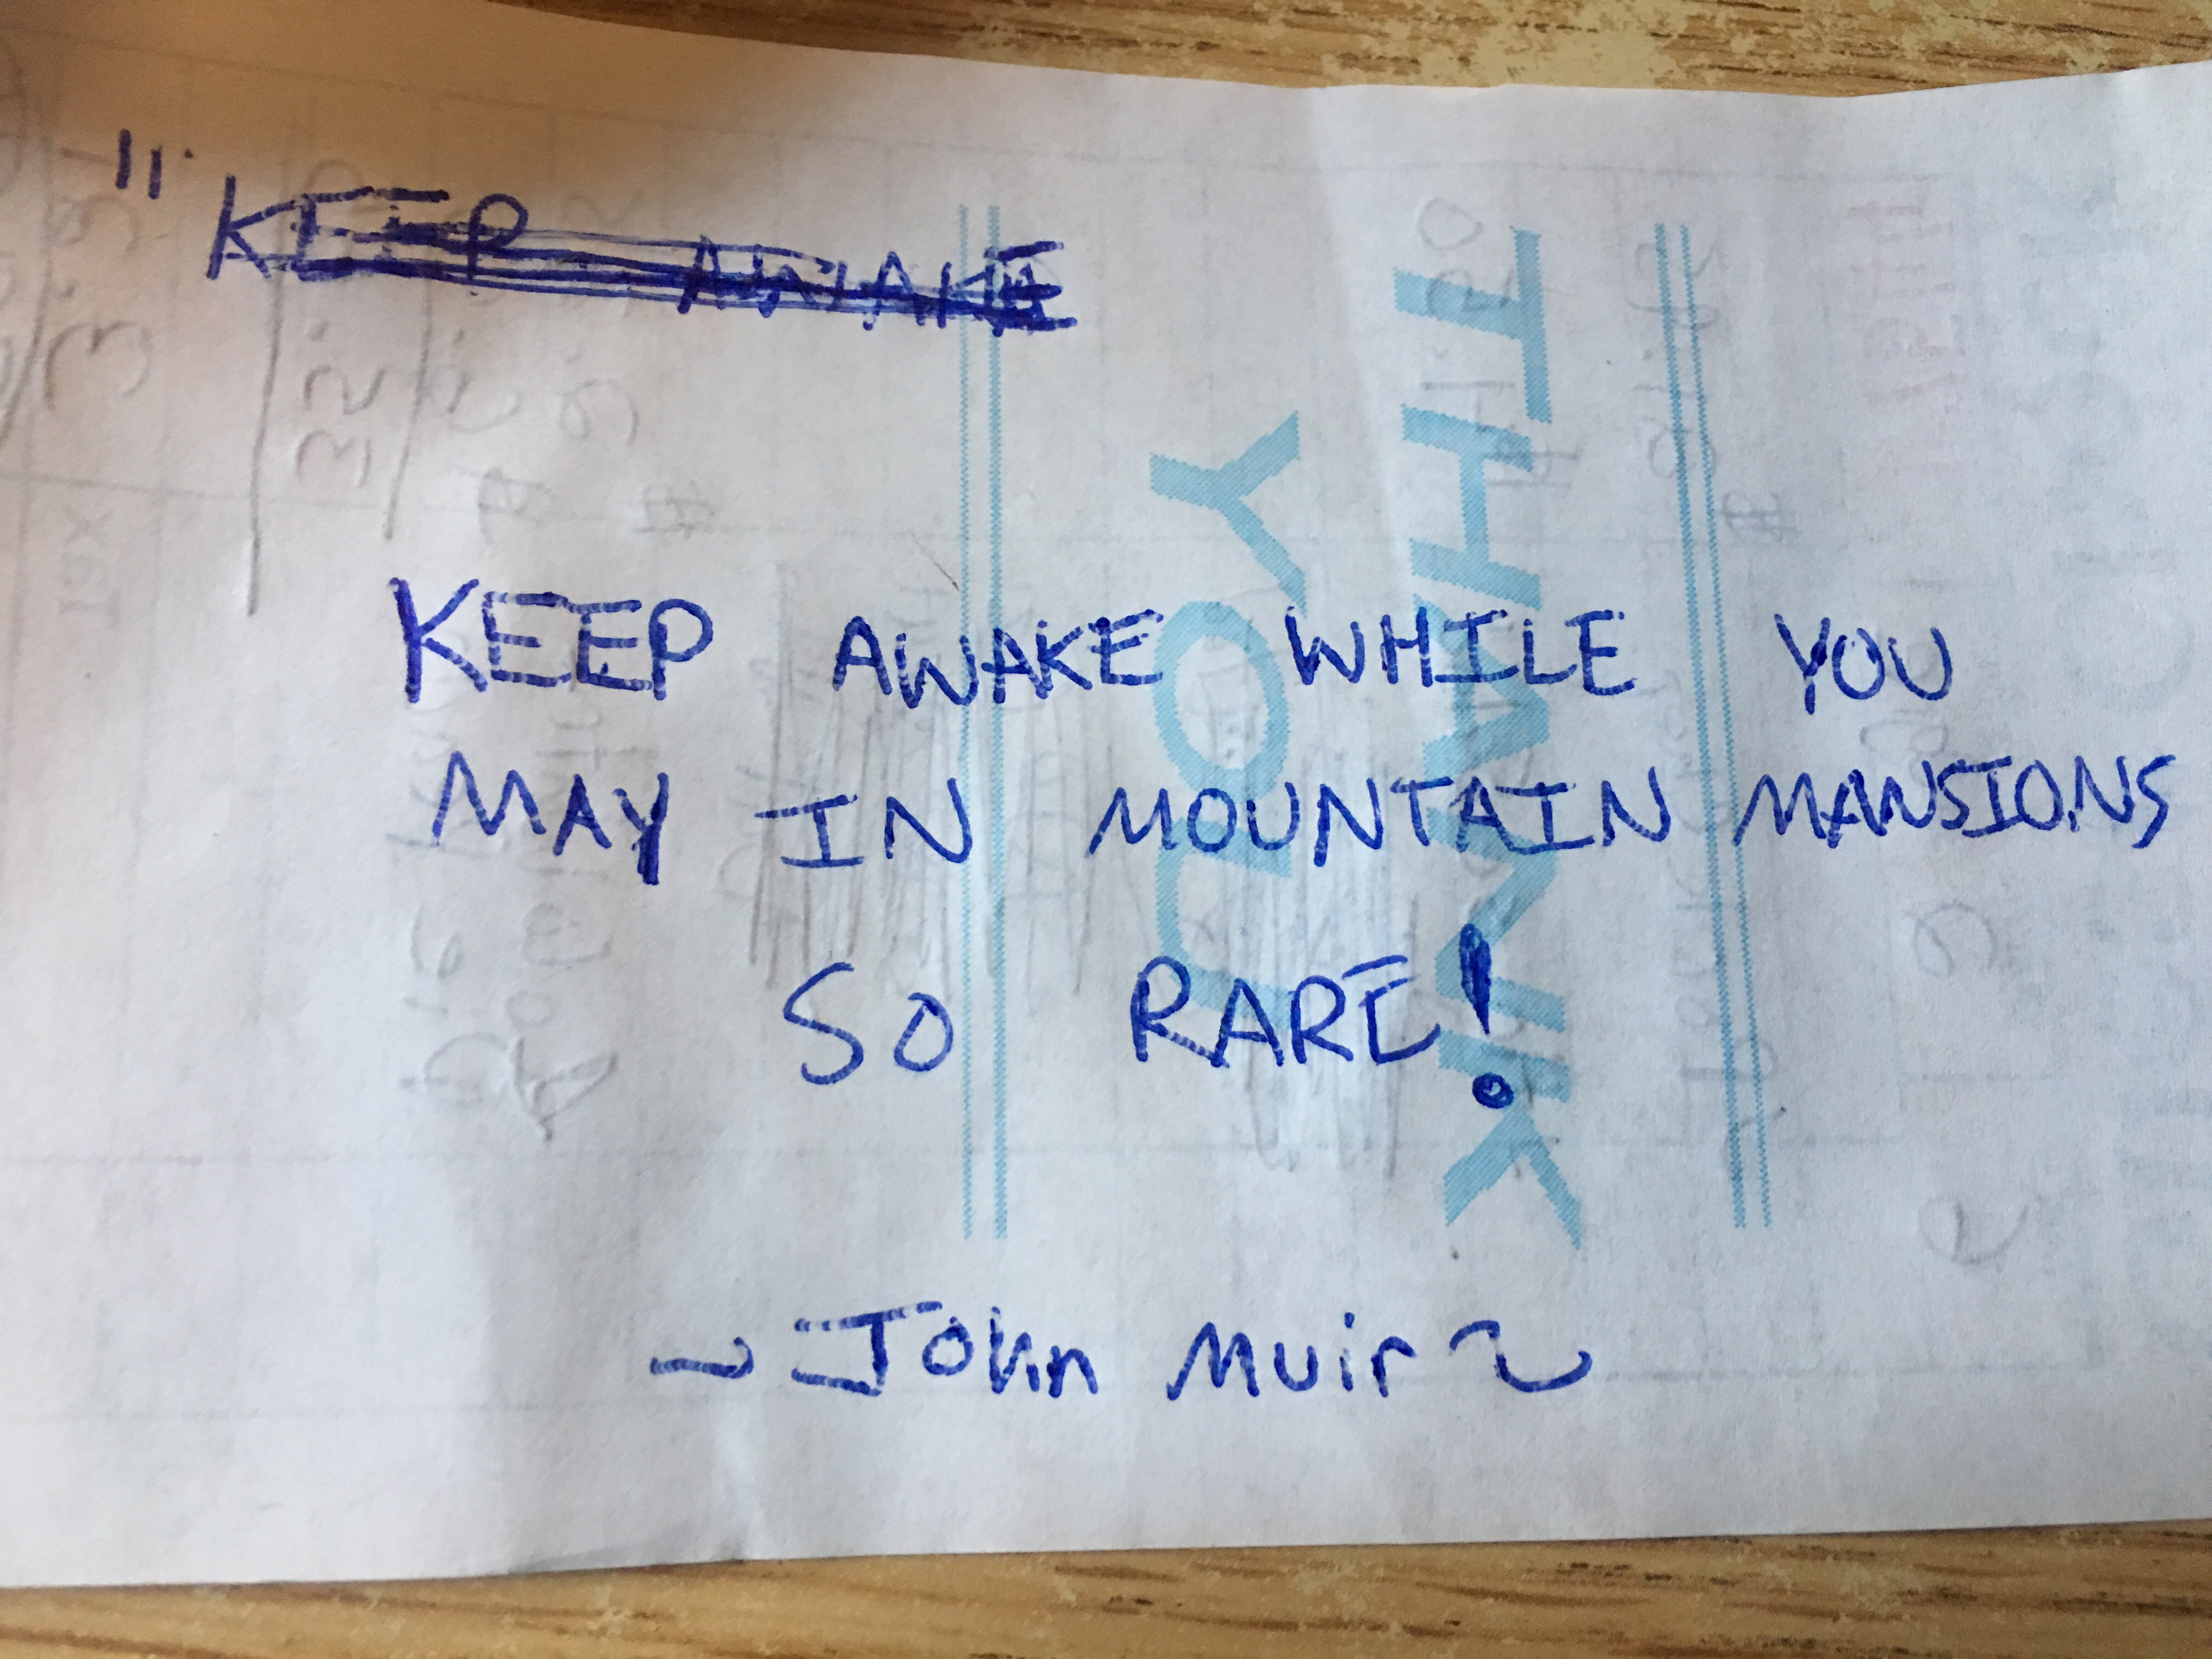 "KEEP AWAKE
KEEP AWAKE WHILE YOU
MAY IN MOUNTAIN MANSIONS
SO RARE!
~John Muir~
THANK
YOU
Tax